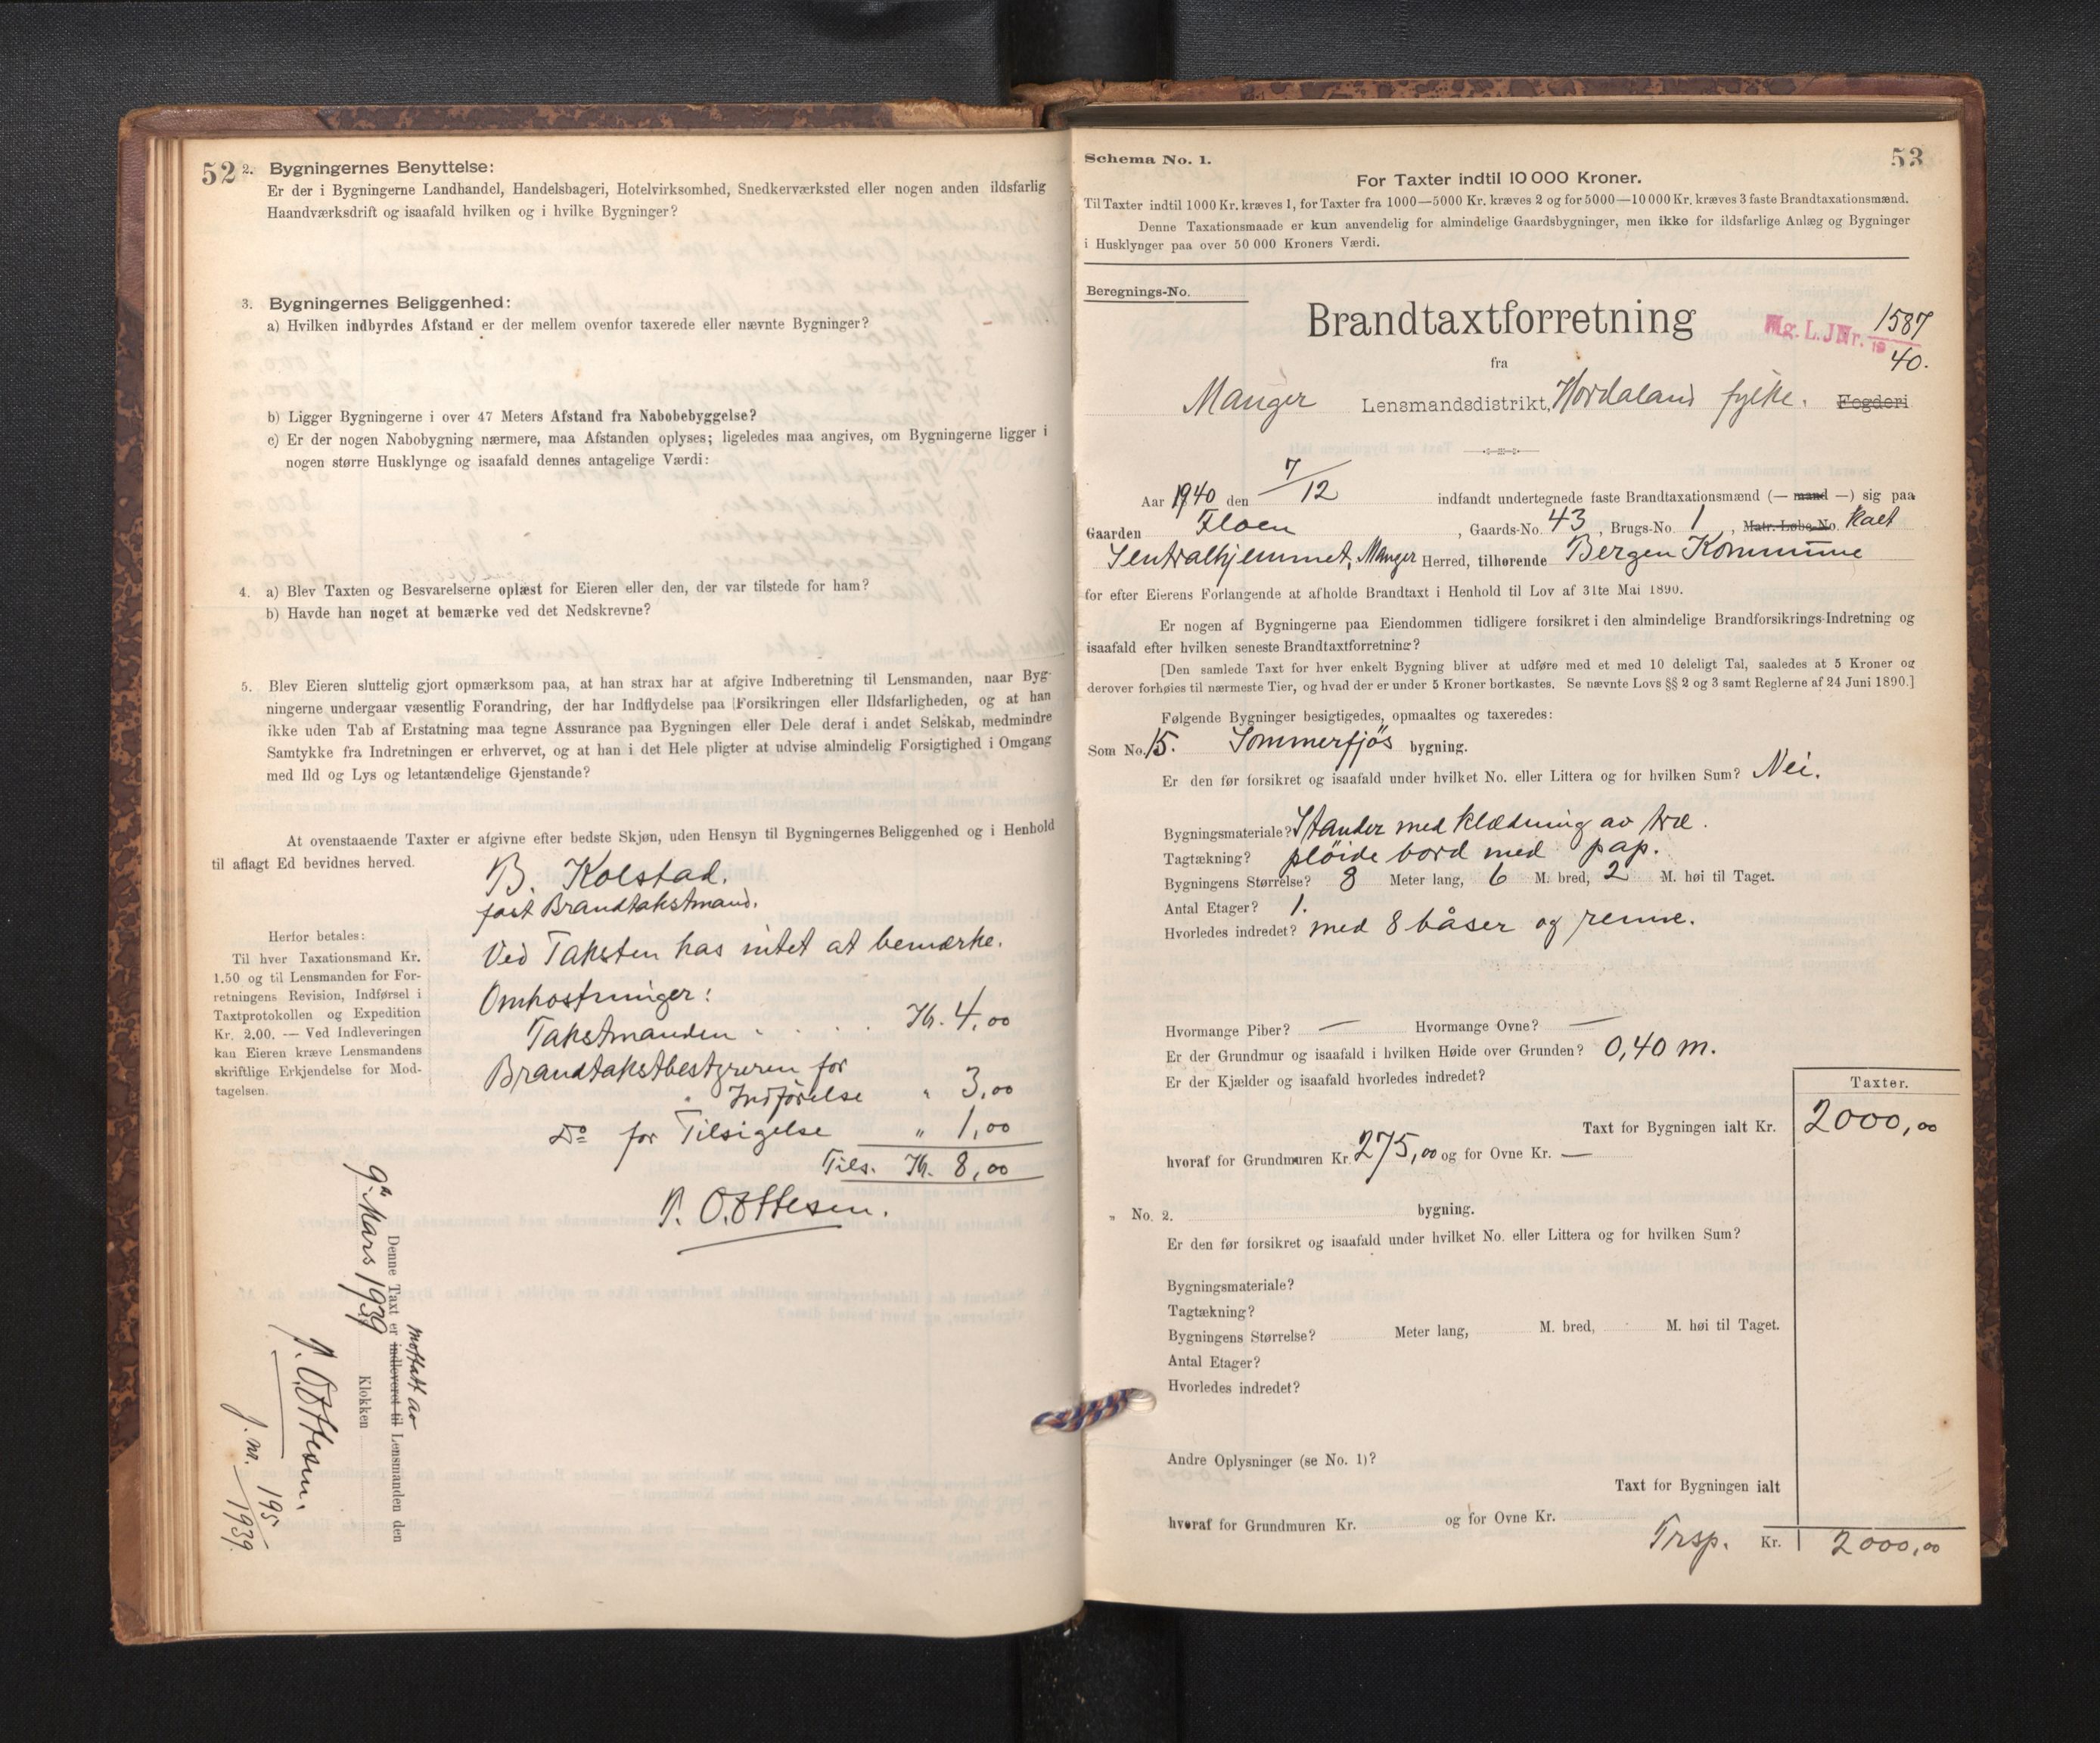 52
2. Bygningernes Benyttelse:
Er der i Bygningerne Landhandel, Handelsbageri, Hotelvirksomhed, Snedkerværksted eller nogen anden ildsfarlig
Haandværksdrift og isaafald hvilken og i hvilke Bygninger?
3. Bygningernes Beliggenhed:
a) Hvilken indbyrdes Afstand er der mellem ovenfor taxerede eller nævnte Bygninger?
b) Ligger Bygningerne i over 47 Meters Afstand fra Nabobebyggelse?
c) Er der nogen Nabobygning nærmere, maa Afstanden oplyses; ligeledes maa angives, om Bygningerne ligger i
nogen større Husklynge og isaafald dennes antagelige Værdi:
4. a) Blev Taxten og Besvarelserne oplæst for Eieren eller den, der var tilstede for ham?
b) Havde han noget at bemærke ved det Nedskrevne?
5. Blev Eieren sluttelig gjort opmærksom paa, at han strax har at afgive Indberetning til Lensmanden, naar Byg-
ningerne undergaar væsentlig Forandring, der har Indflydelse paa Forsikringen eller Ildsfarligheden, og at han
ikke uden Tab af Erstatning maa tegne Assurance paa Bygningen eller Dele deraf i andet Selskab, medmindre
Samtykke fra Indretningen er erhvervet, og at han i det Hele pligter at udvise almindelig Forsigtighed i Omgang
med Ild og Lys og letantændelige Gjenstande?
At ovenstaaende Taxter er afgivne efter bedste Skjøn, uden Hensyn til Bygningernes Beliggenhed og i Henhold
til aflagt Ed bevidnes herved.
B. Kolstad.
fast Brandtakstmand.
Ved Taksten has intet at bemærke.
Omkostninger:
Takstmanden . . . . Kr. 4,00
Brandtakstbestyreren for
" Indførelse " 3,00
Do for Tilsigelse " 1,00
Tils. Kr. 8,00
P. O. Ottesen.
Herfor betales:
Til hver Taxationsmand Kr.
1.50 og til Lensmanden for For-
retningens Revision, Indførsel i
Taxtprotokollen og Expedition
Kr. 2.00. — Ved Indleveringen
kan Eieren kræve Lensmandens
skriftlige Erkjendelse for Mod-
tagelsen.
mottatt av
Denne Taxt er indleveret til Lensmanden den
9de Mars 1939 Klokken
P. O. Ottesen.
J. nr. 195/1939.
Schema No. 1.
53
For Taxter indtil 10 000 Kroner.
Til Taxter indtil 1000 Kr. kræves 1, for Taxter fra 1000—5000 Kr. kræves 2 og for 5000—10 000 Kr. kræves 3 faste Brandtaxationsmænd.
Denne Taxationsmaade er kun anvendelig for almindelige Gaardsbygninger, men ikke for ildsfarlige Anlæg og Bygninger
i Husklynger paa over 50 000 Kroners Værdi.
Beregnings-No.
Brandtaxtforretning
Mg. L. JNr. 1587/1940.
fra
Manger Lensmandsdistrikt, Hordaland fylke. Fogderi
Aar 1940 den 7/12 indfandt undertegnede faste Brandtaxationsmænd (— mand —) sig paa
Gaarden Floen, Gaards-No. 43, Brugs-No. 1, Matr. Løbe-No. kalt
Sentralhjemmet, Manger Herred, tilhørende Bergen Kommune
for efter Eierens Forlangende at afholde Brandtaxt i Henhold til Lov af 31te Mai 1890.
Er nogen af Bygningerne paa Eiendommen tidligere forsikret i den almindelige Brandforsikrings-Indretning og
isaafald efter hvilken seneste Brandtaxtforretning?
[Den samlede Taxt for hver enkelt Bygning bliver at udføre med et med 10 deleligt Tal, saaledes at 5 Kroner og
derover forhøies til nærmeste Tier, og hvad der er under 5 Kroner bortkastes. Se nævnte Lovs §§ 2 og 3 samt Reglerne af 24 Juni 1890.]
Følgende Bygninger besigtigedes, opmaaltes og taxeredes:
Som No. 15. Sommerfjøs bygning.
Er den før forsikret og isaafald under hvilket No. eller Littera og for hvilken Sum? Nei.
Bygningsmateriale? Stander med klædning av træ.
Tagtækning? pløide bord med pap.
Bygningens Størrelse? 8 Meter lang, 6 M. bred, 2 M. høi til Taget.
Antal Etager? 1.
Hvorledes indredet? med 8 båser og renne.
Hvormange Piber? — Hvormange Ovne? —
Er der Grundmur og isaafald i hvilken Høide over Grunden? 0,40 m.
Er der Kjælder og isaafald hvorledes indredet?
Taxter.
Taxt for Bygningen ialt Kr. 2000,00
hvoraf for Grundmuren Kr. 275,00 og for Ovne Kr. —
" No. 2. bygning.
Er den før forsikret og isaafald under hvilket No. eller Littera og for hvilken Sum?
Bygningsmateriale?
Tagtækning?
Bygningens Størrelse? Meter lang, M. bred, M. høi til Taget.
Antal Etager?
Hvorledes indredet?
Andre Oplysninger (se No. 1)?
Taxt for Bygningen ialt
hvoraf for Grundmuren Kr. og for Ovne Kr.
Trsp. Kr. 2000,00